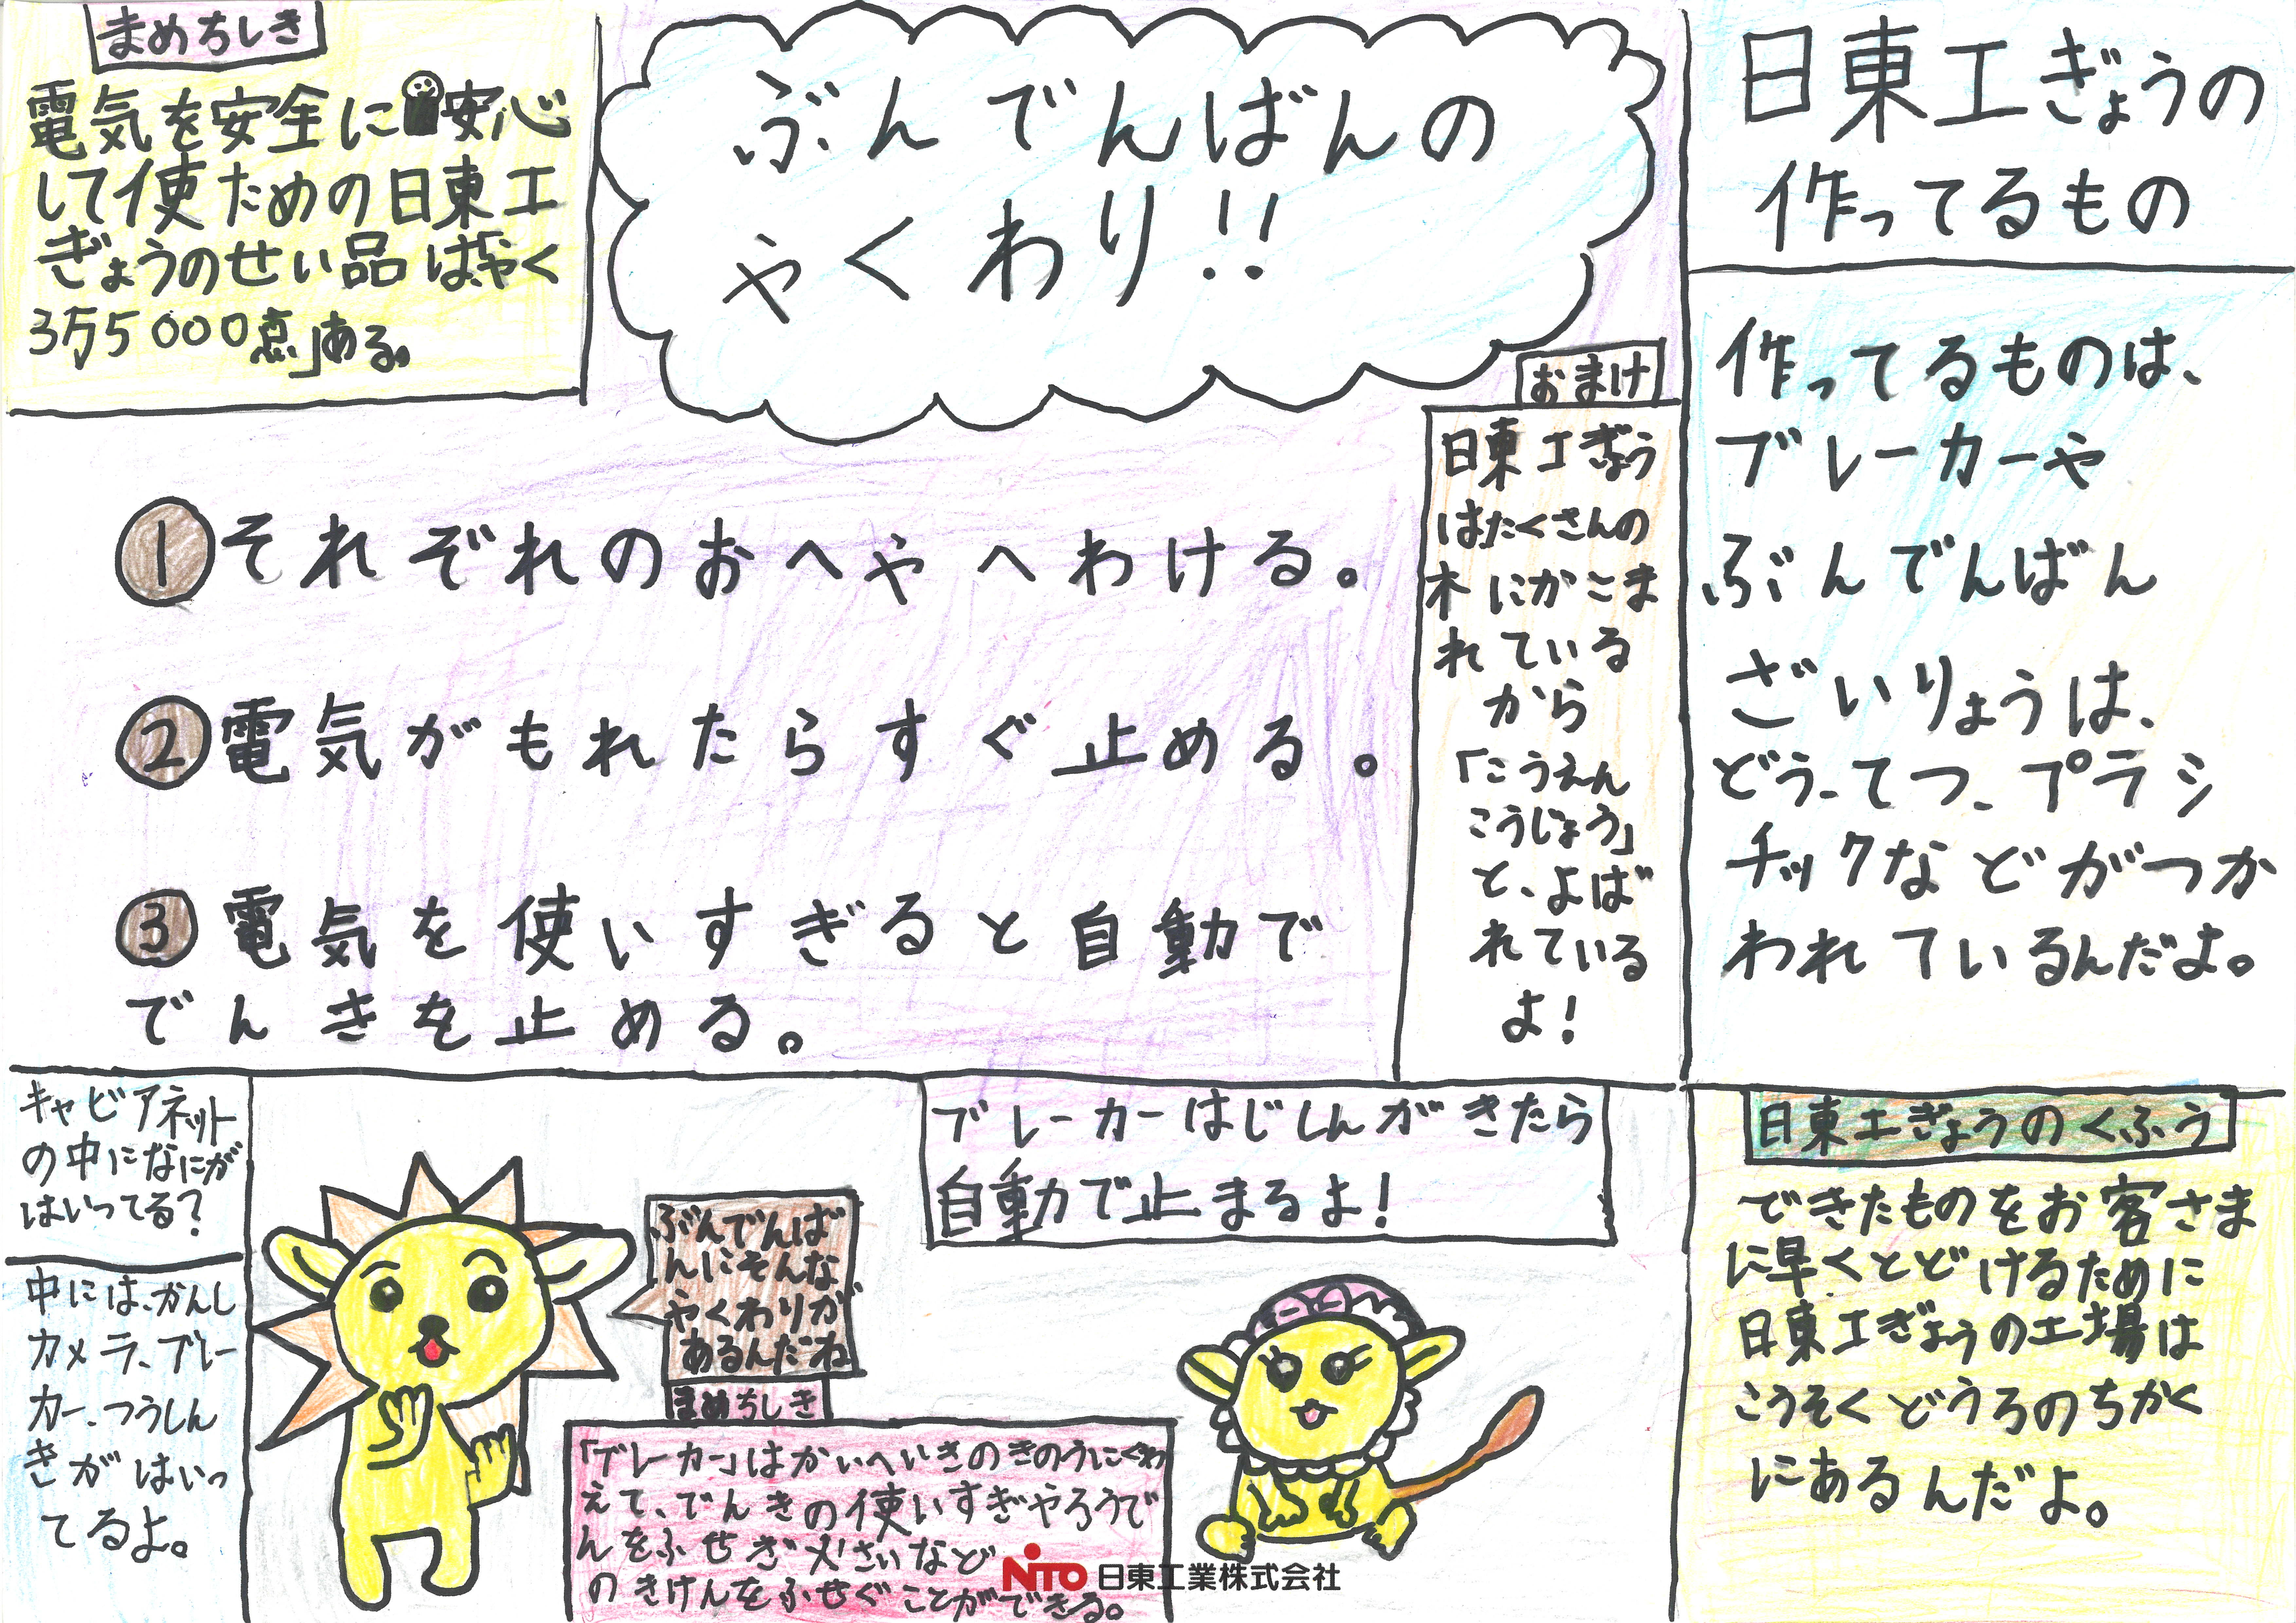 日東工ぎょうの
作ってるもの
作ってるものは、
ブレーカーや
ぶんでんばん
ざいりょうは、
どう、てつ、プラシ
チックなどがつか
われているんだよ。
ぶんでんばんの
やくわり!!
①それぞれのおへやへわける。
②電気がもれたらすぐ止める。
③電気を使いすぎると自動で
でんきを止める。
まめちしき
電気を安全に安心
して使ための日東工
ぎょうのせい品は「やく
3万5000点」ある。
おまけ
日東工ぎょう
はたくさんの
木にかこま
れている
から
「こうえん
こうじょう」
と、よば
れている
よ!
キャビアネット
の中になにが
はいってる?
中には、かんし
カメラ、ブレー
カー、つうしん
きがはいっ
てるよ。
ぶんでんば
んにそんな
やくわりが
あるんだね
ブレーカーはじしんがきたら
自動で止まるよ!
まめちしき
「ブレーカー」はかいへいきのきのうにくわ
えて、でんきの使いすぎやろうで
んをふせぎ火さいなど
のきけんをふせぐことができる。
日東工ぎょうのくふう
できたものをお客さま
に早くとどけるために
日東工ぎょうの工場は
こうそくどうろのちかく
にあるんだよ。
NITO 日東工業株式会社